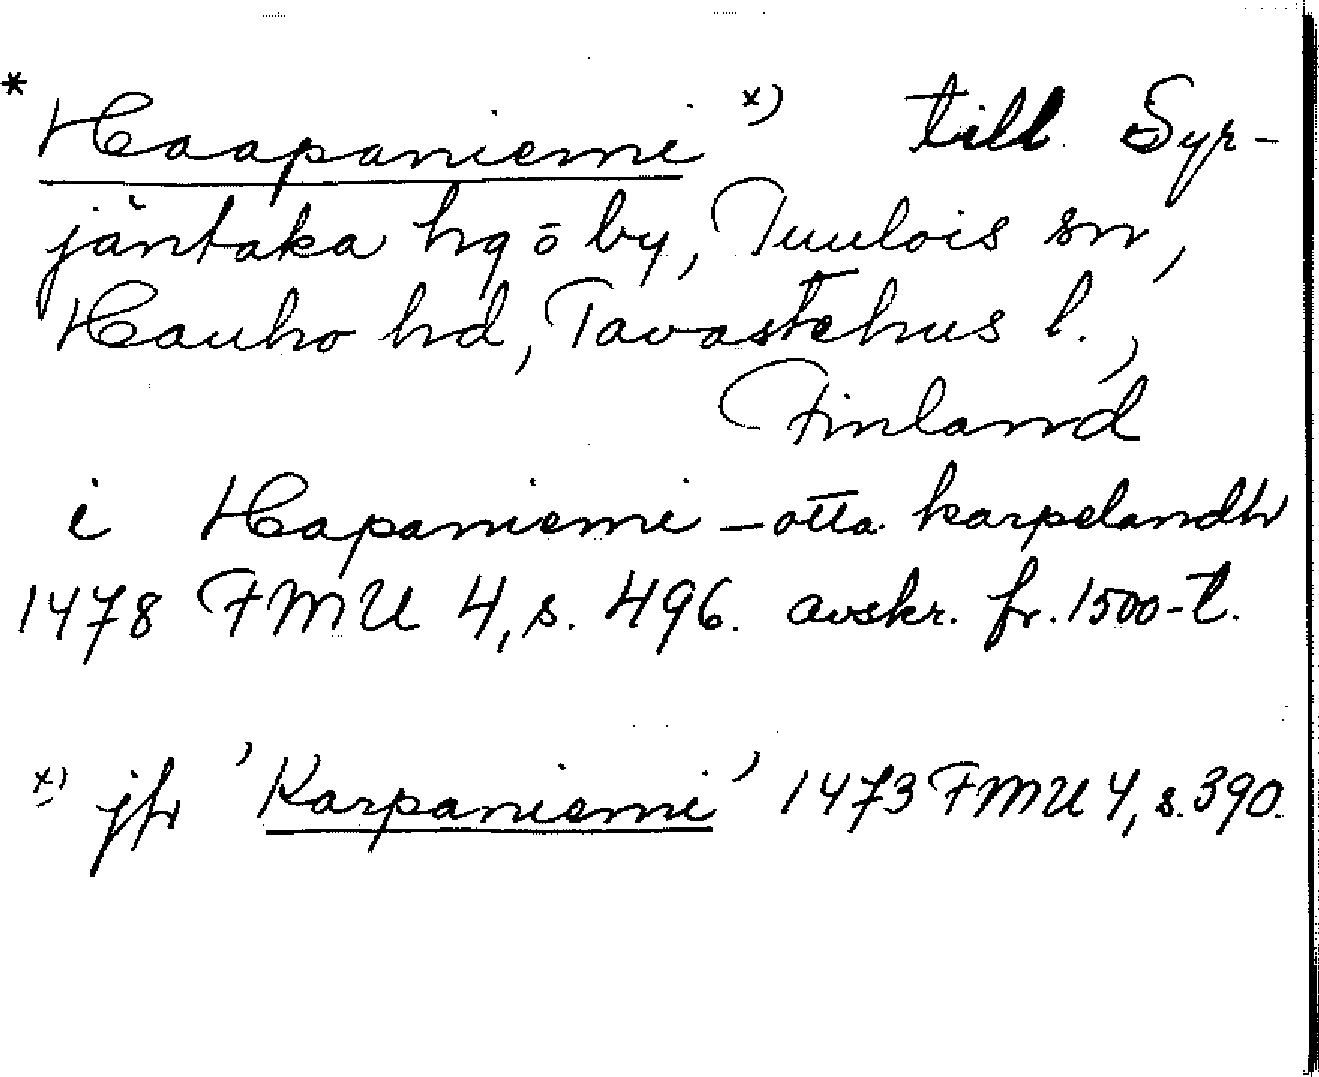 * Haapaniemi x) till Syr-
jäntaka hg o by, Tuulois sn,
Hauho hd, Tavastehus l.,
Finland
i Hapaniemi - otta karpelandh
1478 FMU 4, s. 496. avskr. fr. 1500-t.
x) jfr 'Karpaniemi' 1473 FMU 4, s. 390.